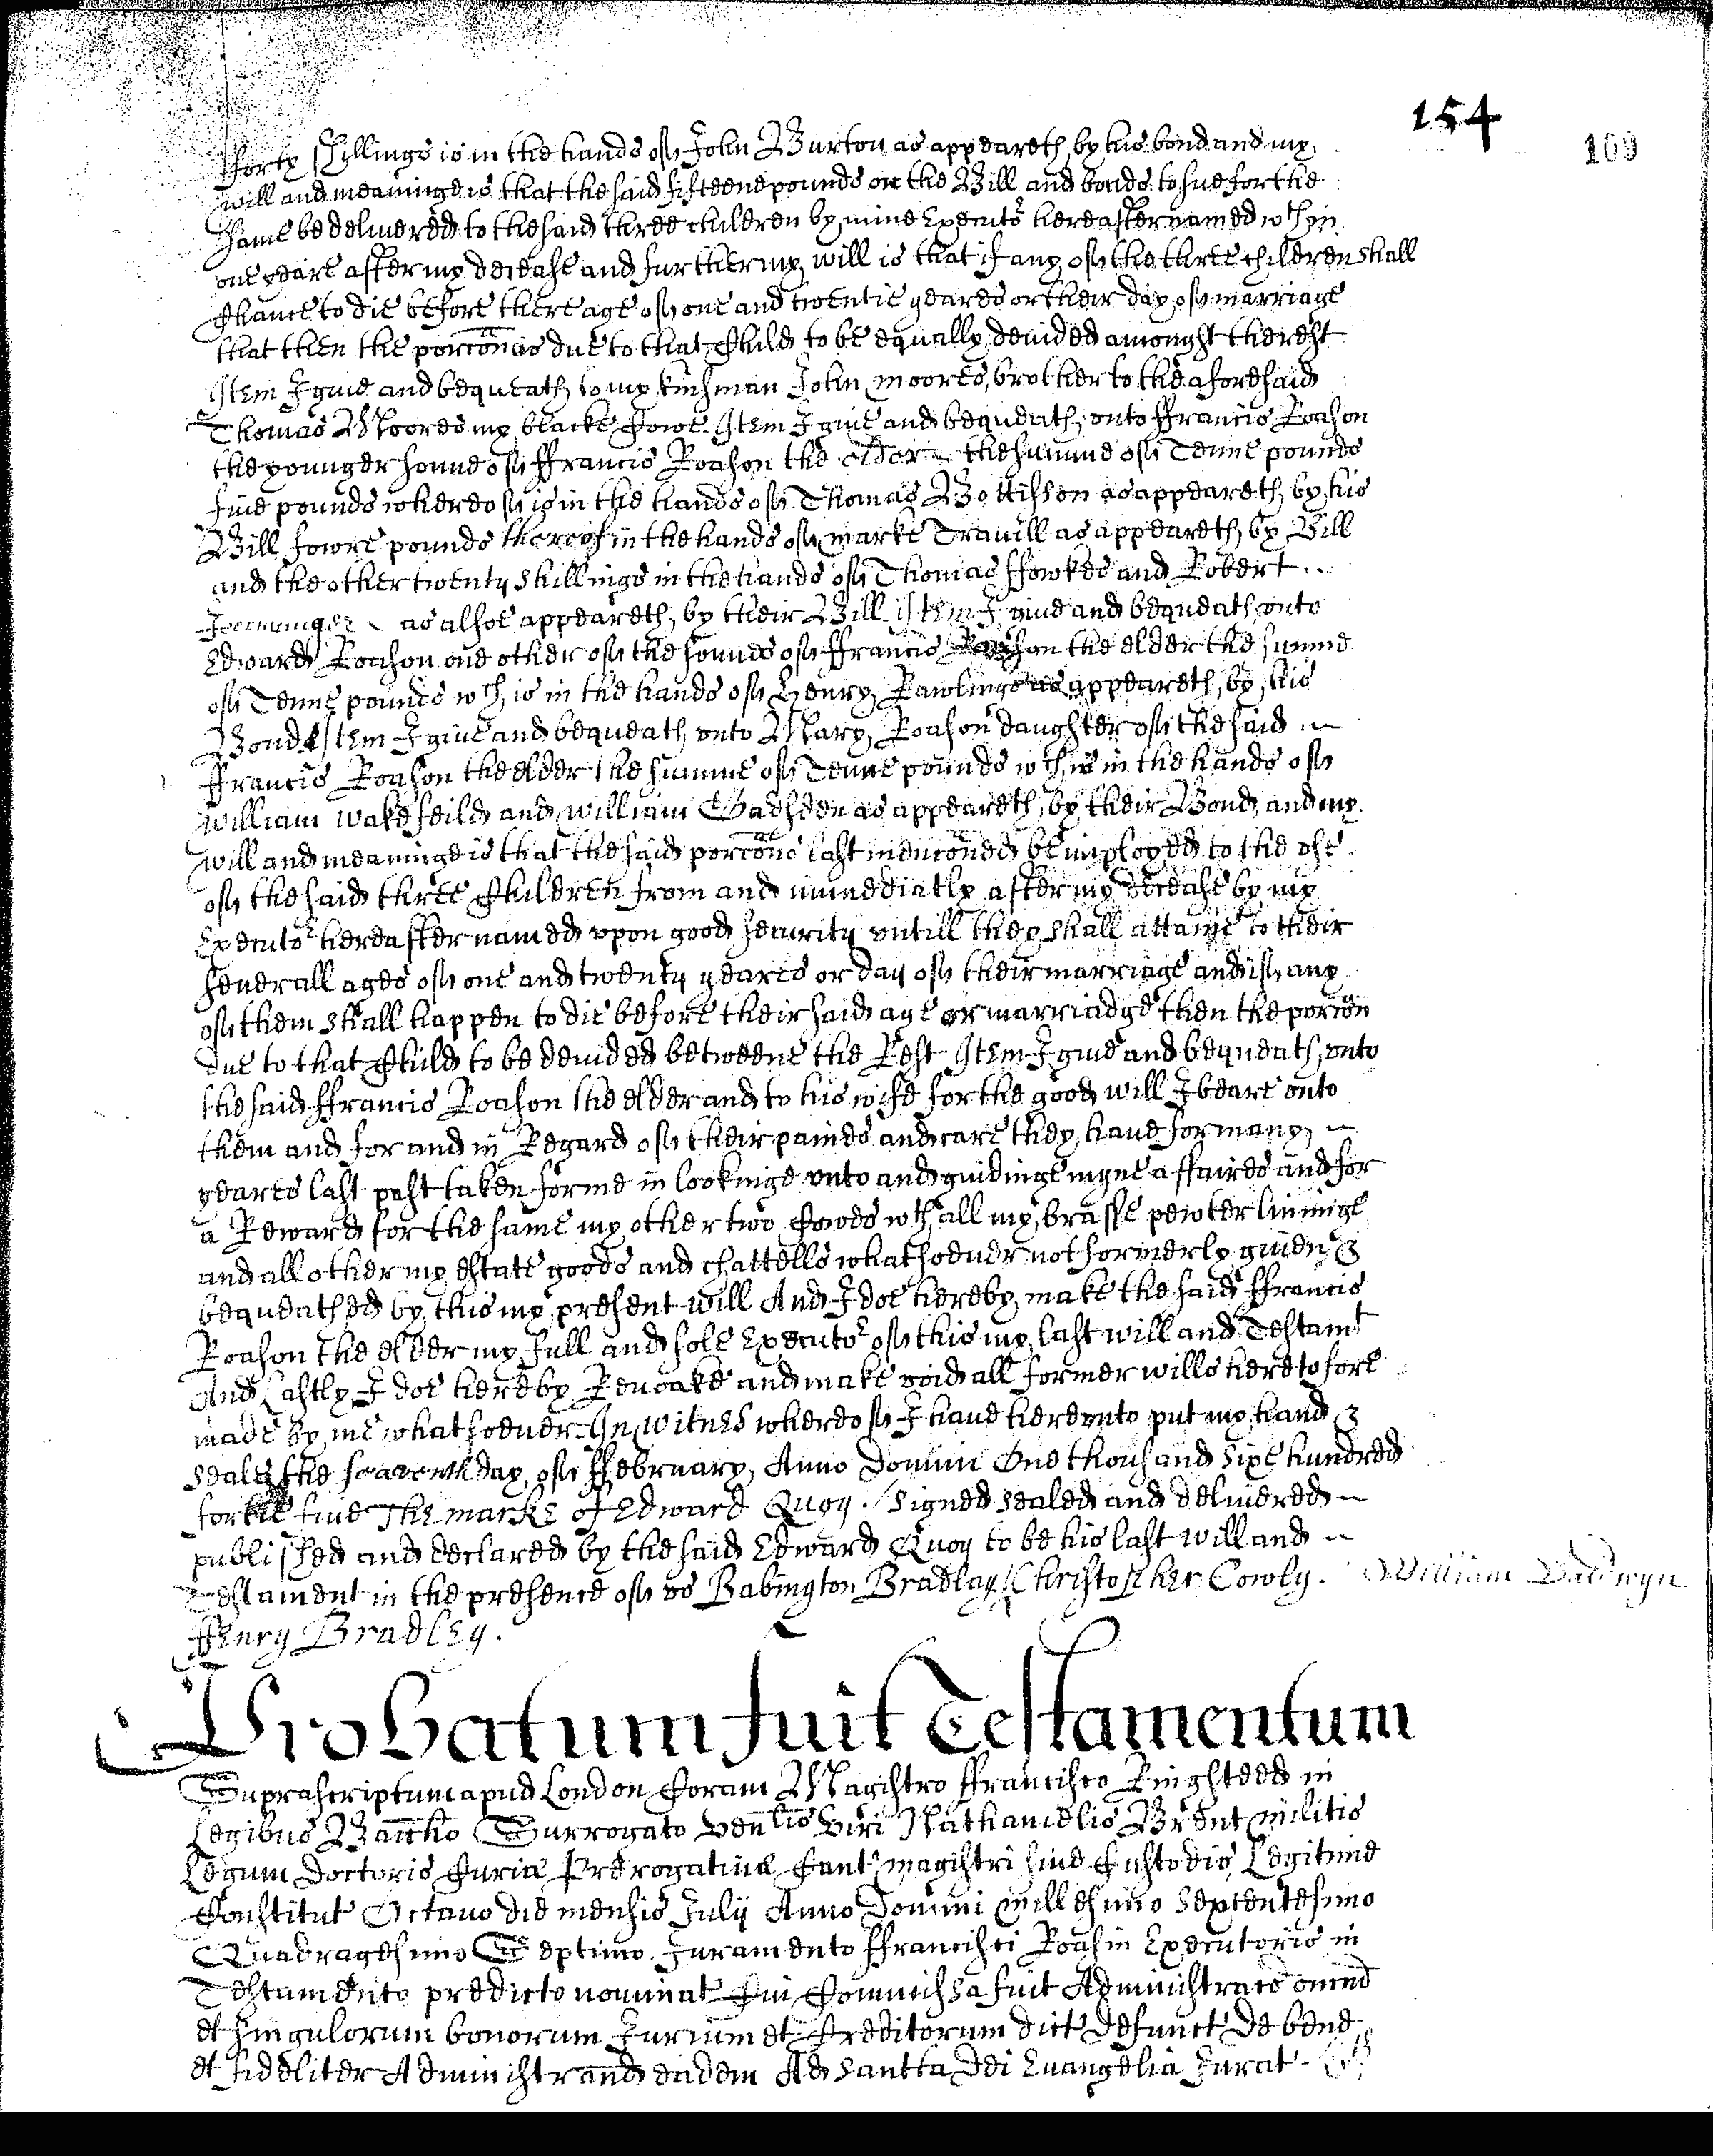 154
169
forty shillings is in the hands of John Burton as appeareth by his bond and my
will and meaninge is that the said fifteene pounds or the Bill and bonds to sue for the
same be deliuered to the said three children by mine Executor hereafter named wthin
one yeare after my decease and further my will is that if any of the three children shall
chance to die before there age of one and twentie yeares or their day of marriage
that then the porcon as due to that Child to be equally deuided amongst the rest
Item I giue and bequeath to my kinsman John moores brother to the aforesaid
Thomas Moores my blacke Cowe Item I giue and bequeath vnto ffrancis Roason
the younger sonne of ffrancis Roason the elder the summe of Tenne pounds
fiue pounds whereof is in the hands of Thomas Bottisson as appeareth by his
Bill fowre pounds thereof in the hands of marke Trauill as appeareth by Bill
and the other twenty shillings in the hands of Thomas ffowkes and Robert
as alsoe appeareth by their Bill Item I giue and bequeath vnto
Edward Roason one other of the sonnes of ffrancis Roason the elder the summe
of Tenne pounds wch is in the hands of Henry Rawlings as appeareth by his
Bond Item I giue and bequeath vnto Mary Roason daughter of the said
ffrancis Roason the elder the summe of Tenne pounds wch is in the hands of
william wakefeild and william Gadsden as appeareth by their Bond and my
will and meaninge is that the said porcons last menconed be imployed to the vse
of the said three Children from and immediatly after my decease by my
Executor hereafter named vpon good security vntill they shall attaine to their
seuerall ages of one and twenty yeares or day of their marriage and if any
of them shall happen to die before their said age or marriadge then the porcon
due to that Child to be deuided betweene the Rest Item I giue and bequeath vnto
the said ffrancis Roason the elder and to his wife for the good will I beare vnto
them and for and in Regard of their paines and care they haue for many
yeares last past taken for me in lookinge vnto and guidinge myne affaires and for
a Reward for the same my other two Cowes wth all my brasse pewter linninge
and all other my estate goods and chattells whatsoeuer not formerly giuen &
bequeathed by this my present will And I doe hereby make the said ffrancis
Roason the elder my full and sole Executor of this my last will and Testamt
And Lastly I doe hereby Reuoake and make void all former wills heretofore
made by me whatsoeuer In witnes whereof I haue herevnto put my hand &
seale the seaventh day of ffebruary Anno Domini One thousand Sixe hundred
fortie fiue The marke of Edward Quoy. Signed sealed and deliuered
published and declared by the said Edward Quoy to be his last will and
Testament in the presence of vs Babington Bradlay Christopher Cowly. William Baldwyn
Henry Bradley.
Probatum fuit Testamentum
Suprascriptum apud London Coram Magistro ffrancisco Ringsteed in
Legibus Bancho Surrogato venlis viri Nathanielis Brent militis
Legum Doctoris Curiæ Prerogatiuæ Cant magistri siue Custodis Legitime
Constitut Octauo die mensis Julij Anno Domini millesimo Sexcentesimo
Quadragesimo Septimo. Juramento ffrancisci Roasin Executoris in
Testamento predicto nominat Cui Commissa fuit Administraco omni
et singulorum bonorum Jurium et Creditorum dict defunct De bene
et fideliter Administrand eadem Ad Sancta Dei Euangelia Jurat